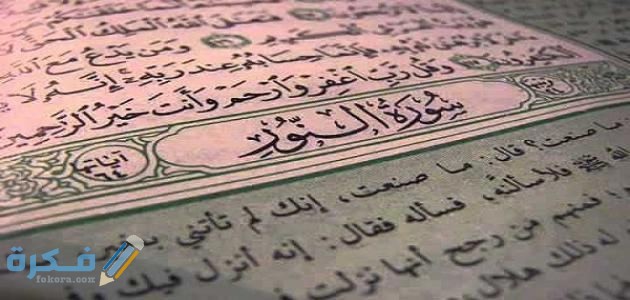 فَتَعَـٰلَى ٱللَّهُ ٱلْمَلِكُ ٱلْحَقُّ
وَمَن يَدْعُ مَعَ
فَإِنَّمَا حِسَابُهُ عِندَ رَبِّهِ إِنَّهُ لَا
وَقُل رَّبِّ ٱغْفِرْ وَٱرْحَمْ وَأَنتَ خَيْرُ ٱلرَّٰحِمِينَ
سُورَةُ النُّورِ
آياتها ٦٤
ما صنعت؟ قال: ما صنعت، إنك لم تأتني بخير
الله ﷺ فلأسألنه، فسأله فقال: إنه أنزل فيك
فمنهم من رجح أنها نزلت
له ذلك هلال
فكرة
fokora.com